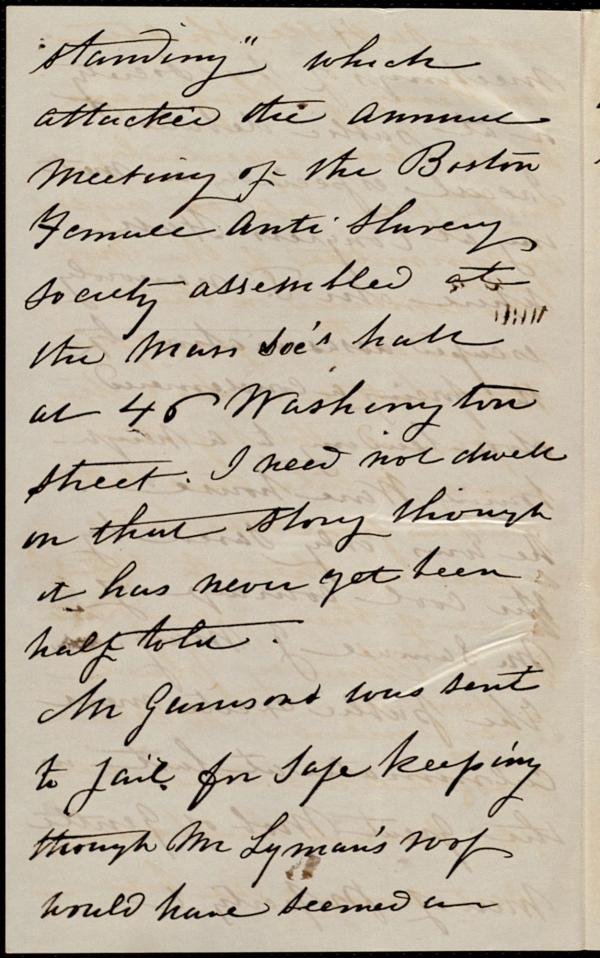 standing" which
attacked the annual
meeting of the Boston
Female Anti Slavery
Society assembled at
the Mass Soc's hall
at 46 Washington
street. I need not dwell
on that story though
it has never yet been
half told.
Mr Garrison was sent
to jail for safe keeping
though Mr Lyman's roof
would have seemed an